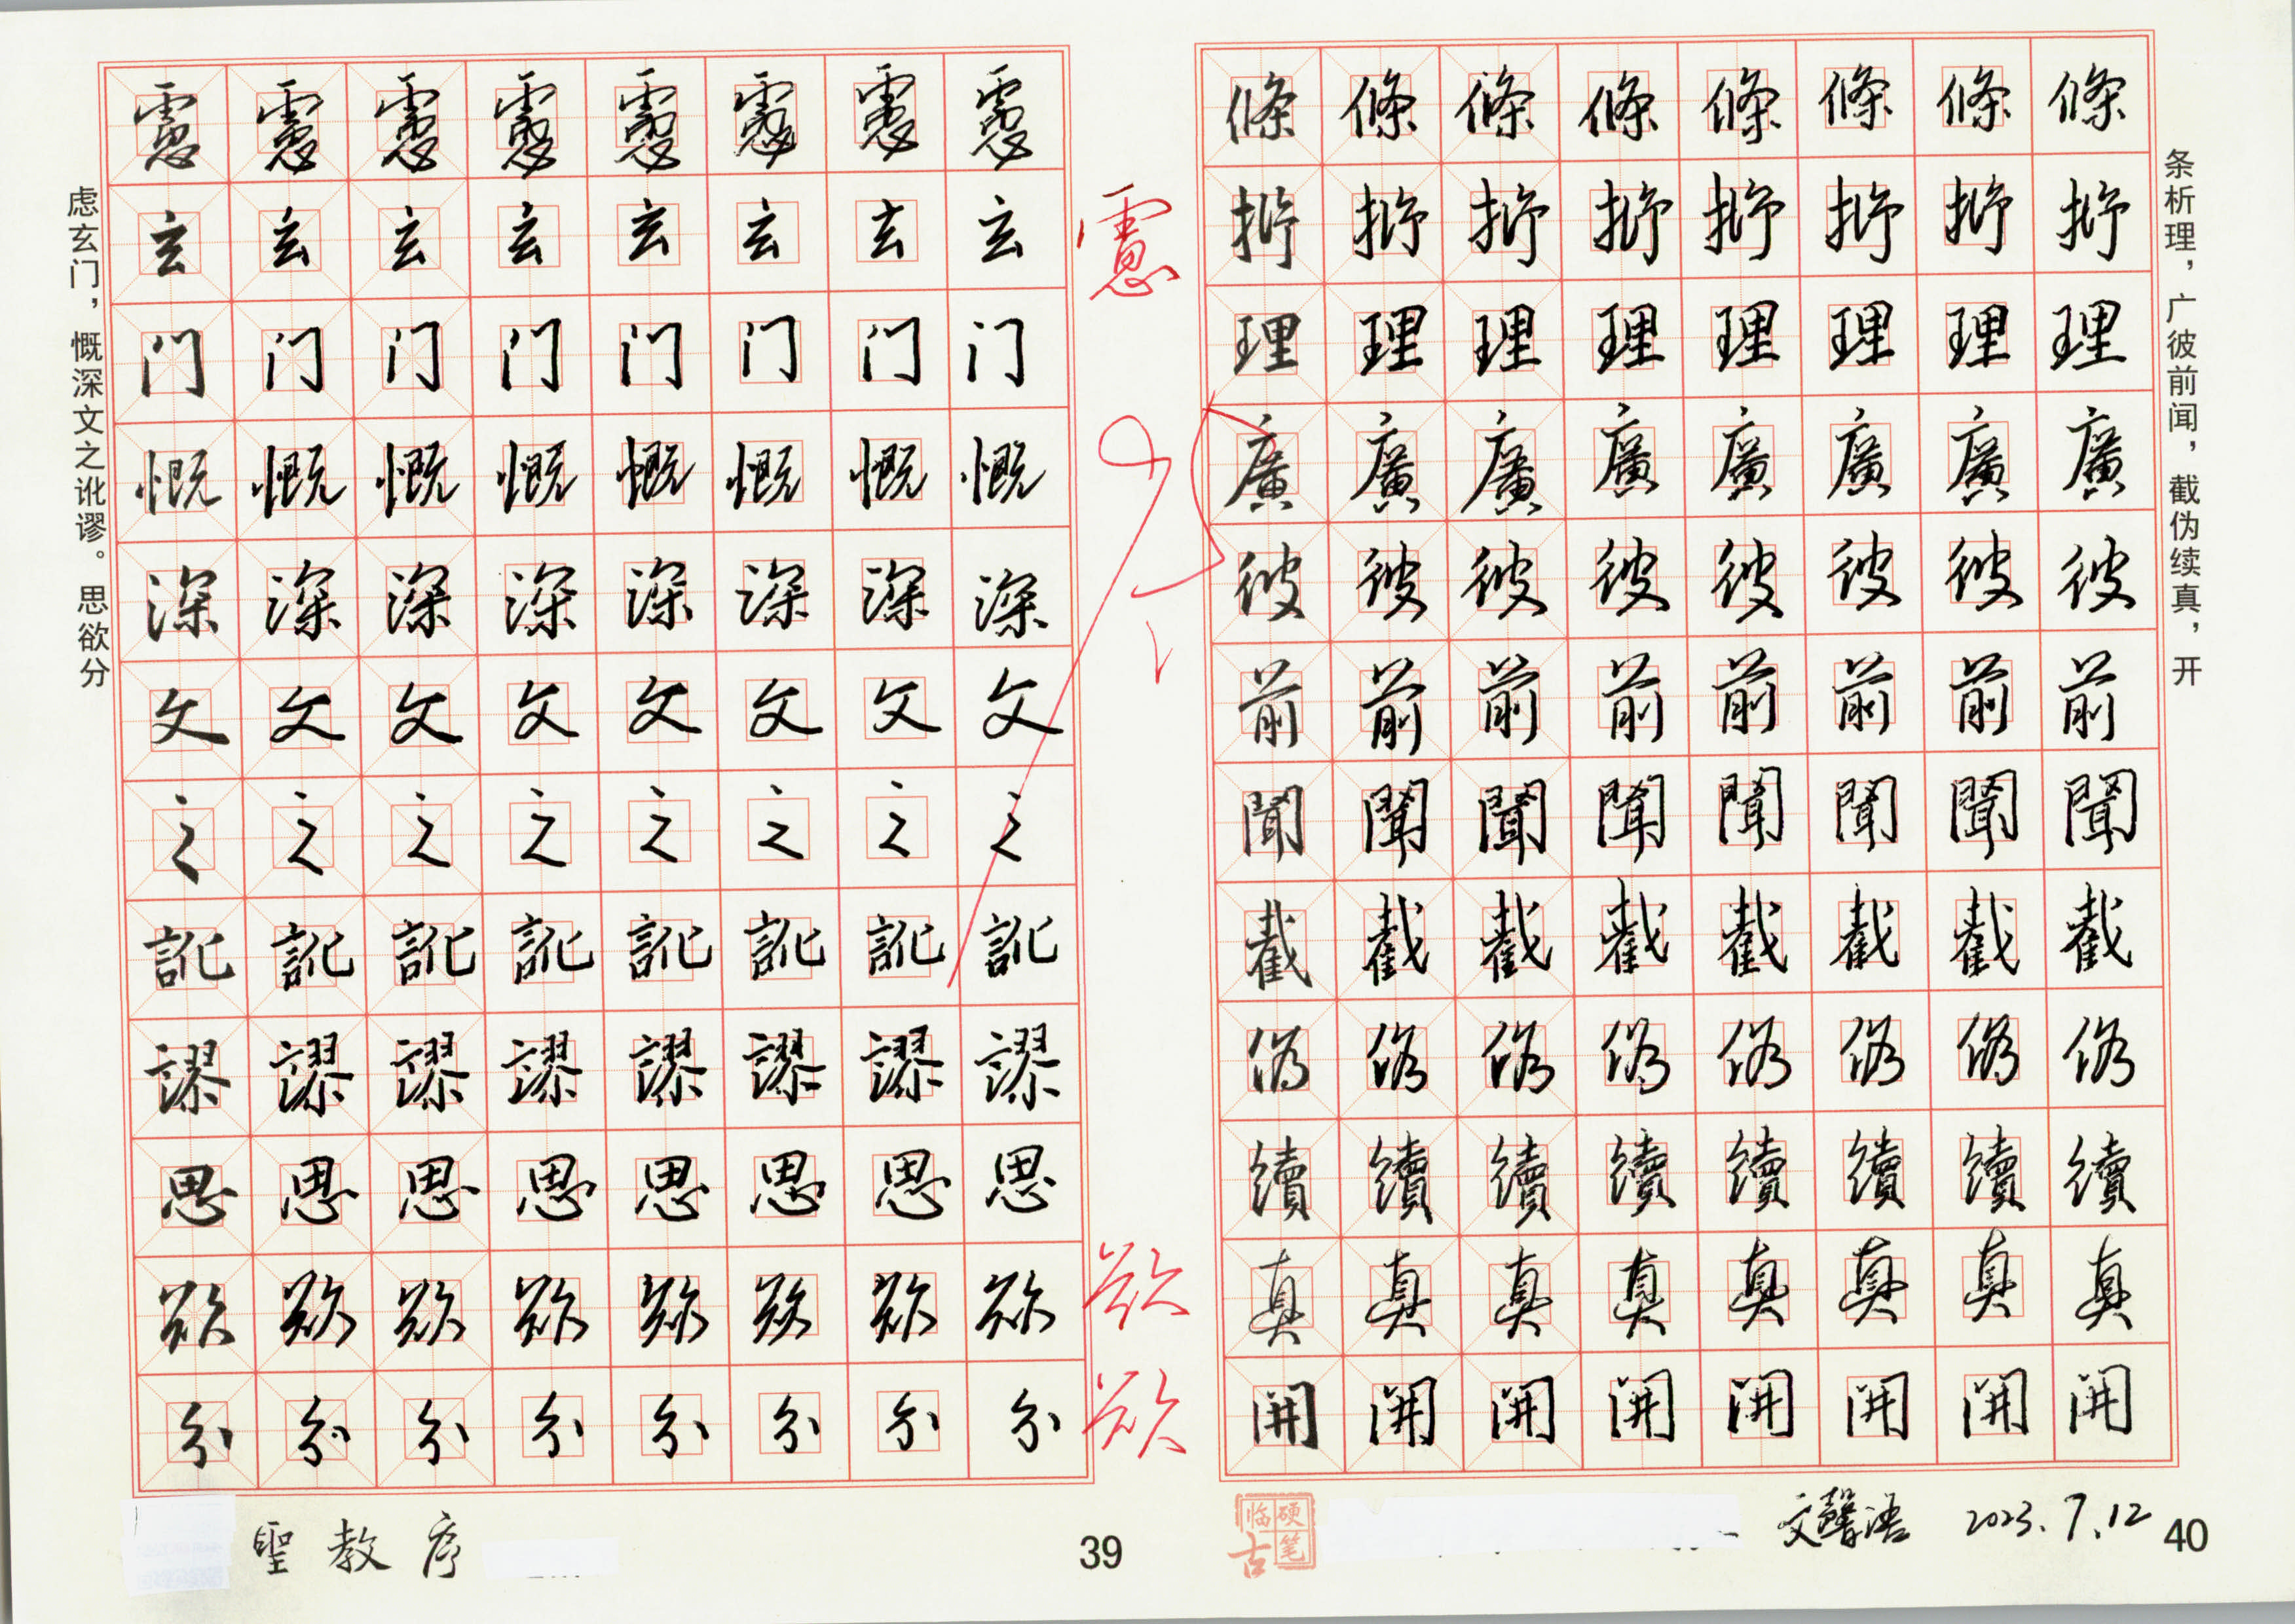 虑玄门，慨深文之讹谬。思欲分
慮 慮 慮 慮 慮 慮 慮 慮
玄 玄 玄 玄 玄 玄 玄 玄
门 门 门 门 门 门 门 门
慨 慨 慨 慨 慨 慨 慨 慨
深 深 深 深 深 深 深 深
文 文 文 文 文 文 文 文
之 之 之 之 之 之 之 之
訛 訛 訛 訛 訛 訛 訛 訛
謬 謬 謬 謬 謬 謬 謬 謬
思 思 思 思 思 思 思 思
欲 欲 欲 欲 欲 欲 欲 欲
分 分 分 分 分 分 分 分
聖教序
39
慮
95
欲
欲
條 條 條 條 條 條 條 條
析 析 析 析 析 析 析 析
理 理 理 理 理 理 理 理
廣 廣 廣 廣 廣 廣 廣 廣
彼 彼 彼 彼 彼 彼 彼 彼
前 前 前 前 前 前 前 前
聞 聞 聞 聞 聞 聞 聞 聞
截 截 截 截 截 截 截 截
偽 偽 偽 偽 偽 偽 偽 偽
續 續 續 續 續 續 續 續
真 真 真 真 真 真 真 真
開 開 開 開 開 開 開 開
条析理，广彼前闻，截伪续真，开
硬笔临古
文馨语 2023.7.12
40